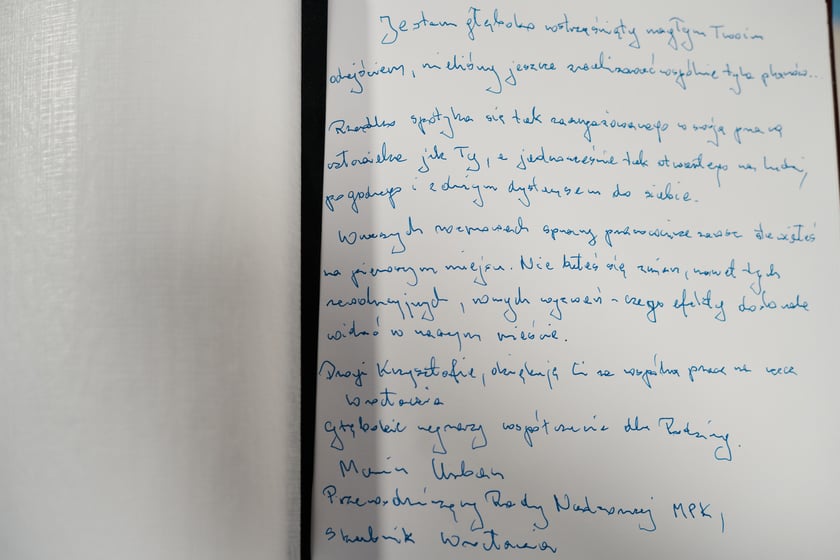 Jestem głęboko wstrząśnięty nagłym Twoim
odejściem, mieliśmy jeszcze zrealizować wspólnie tyle planów..
Rzadko spotyka się tak zaangażowanego w swoją pracę
człowieka jak Ty, a jednocześnie tak otwartego na ludzi,
pogodnego i z dużym dystansem do siebie.
W naszych rozmowach sprawy pracownicze zawsze stawiałeś
na pierwszym miejscu. Nie bałeś się zmian, nawet tych
rewolucyjnych, nowych wyzwań - czego efekty doskonale
widać w naszym mieście.
Drogi Krzysztofie, dziękuję Ci za wspólną pracę na rzecz
Wrocławia
Głębokie wyrazy współczucia dla Rodziny.
Marcin Urban
Przewodniczący Rady Nadzorczej MPK,
Skarbnik Wrocławia